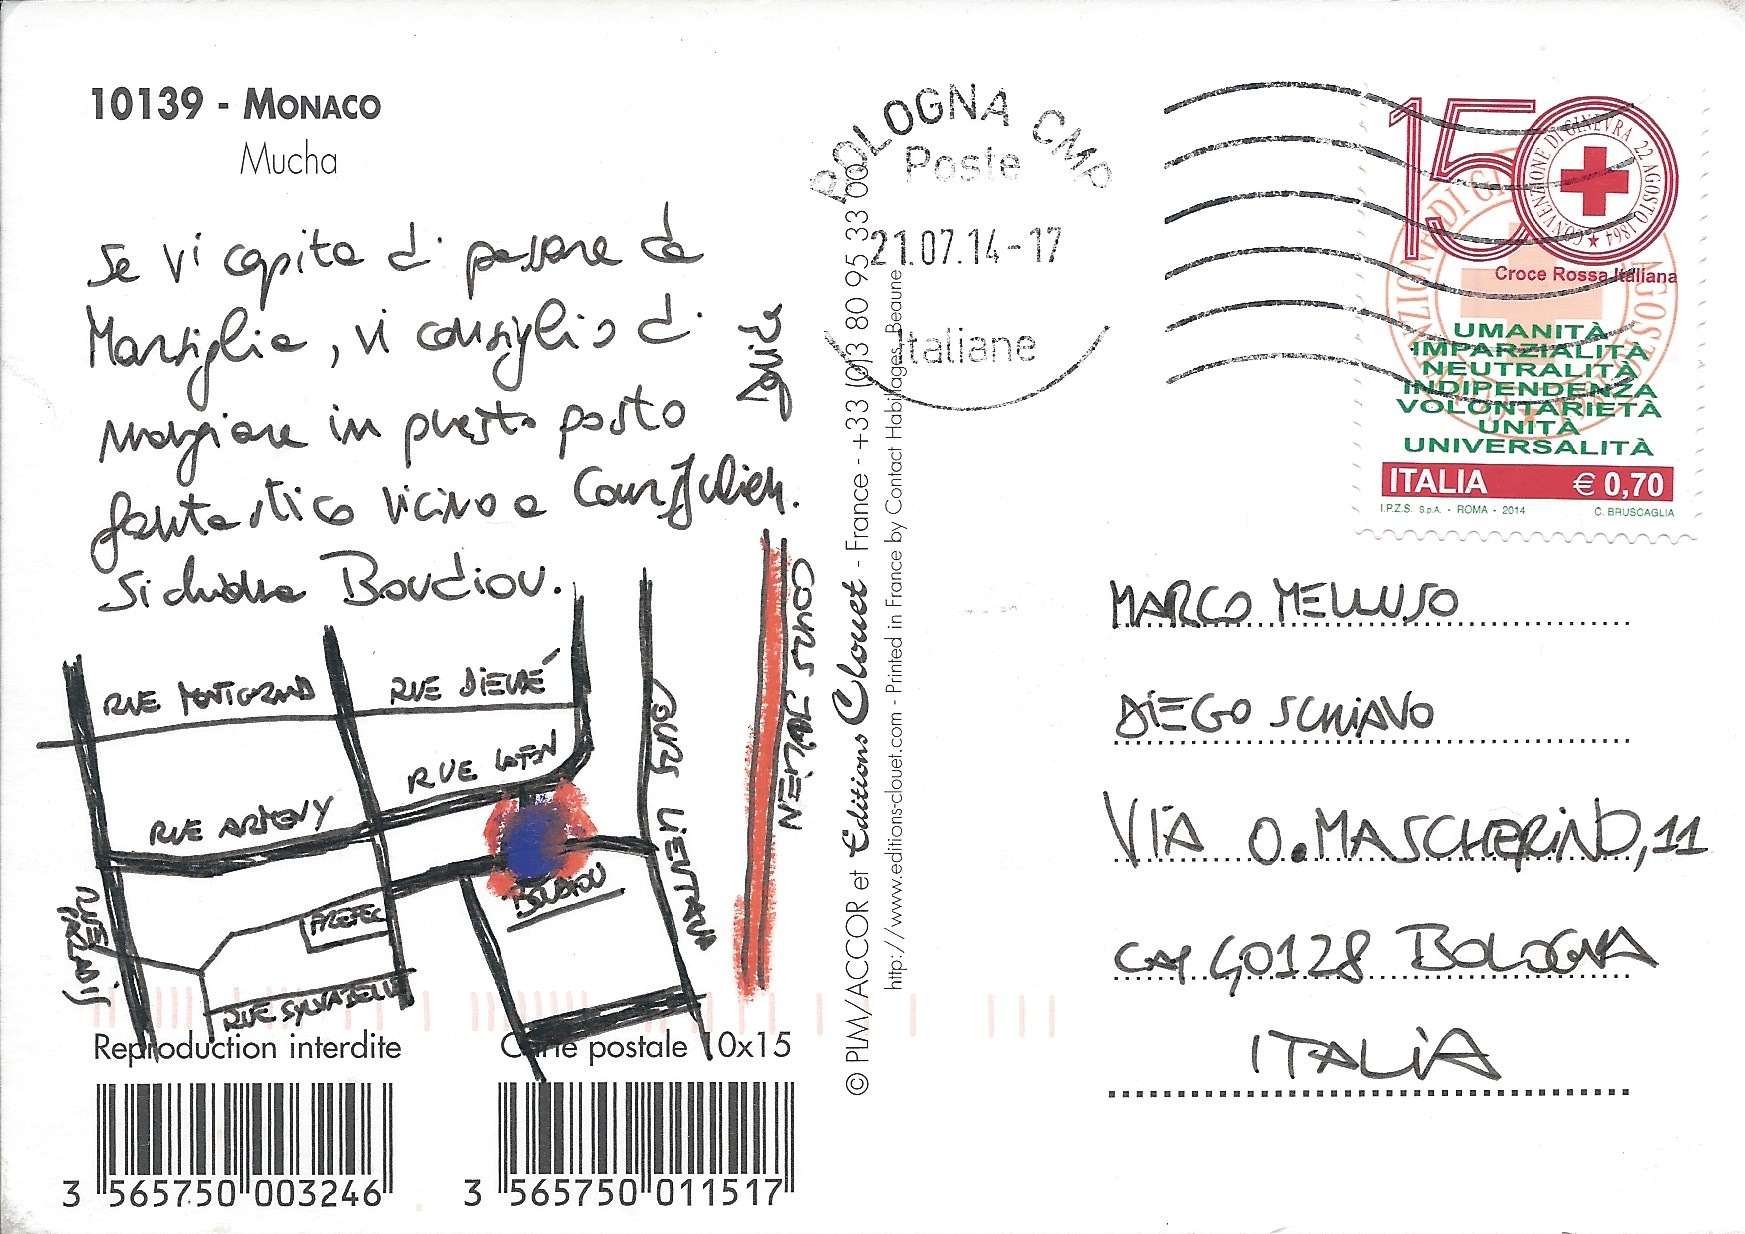 10139 - MONACO
Mucha
Se vi capita di passare da
Marsiglia, vi consiglio di
mangiare in questo posto
fantastico vicino a Cours Julien.
Si chiama Boudiou.
RUE MONTGRAND
RUE DIEUDÉ
RUE ARMENY
RUE
BOUDIOU
PREFEC
RUE SYLVABELLE
RUE PARADIS
COURS LIEUTAUD
COURS JULIEN
Reproduction interdite
Carte postale 10x15
3 565750 003246
3 565750 011517
© PLM/ACCOR et Editions Clouet - France - +33 (0)3 80 95 33 00
http://www.editions-clouet.com - Printed in France by Contact Habillages Beaune
BOLOGNA CMP
Poste
21.07.14-17
Italiane
150
CONVENZIONE DI GINEVRA 22 AGOSTO 1864
Croce Rossa Italiana
UMANITÀ
IMPARZIALITÀ
NEUTRALITÀ
INDIPENDENZA
VOLONTARIETÀ
UNITÀ
UNIVERSALITÀ
ITALIA € 0,70
I.P.Z.S. S.p.A. - ROMA - 2014 C. BRUSCAGLIA
MARCO MELLUSO
DIEGO SCHIAVO
VIA O. MASCHERINO, 11
CAP 40128 BOLOGNA
ITALIA